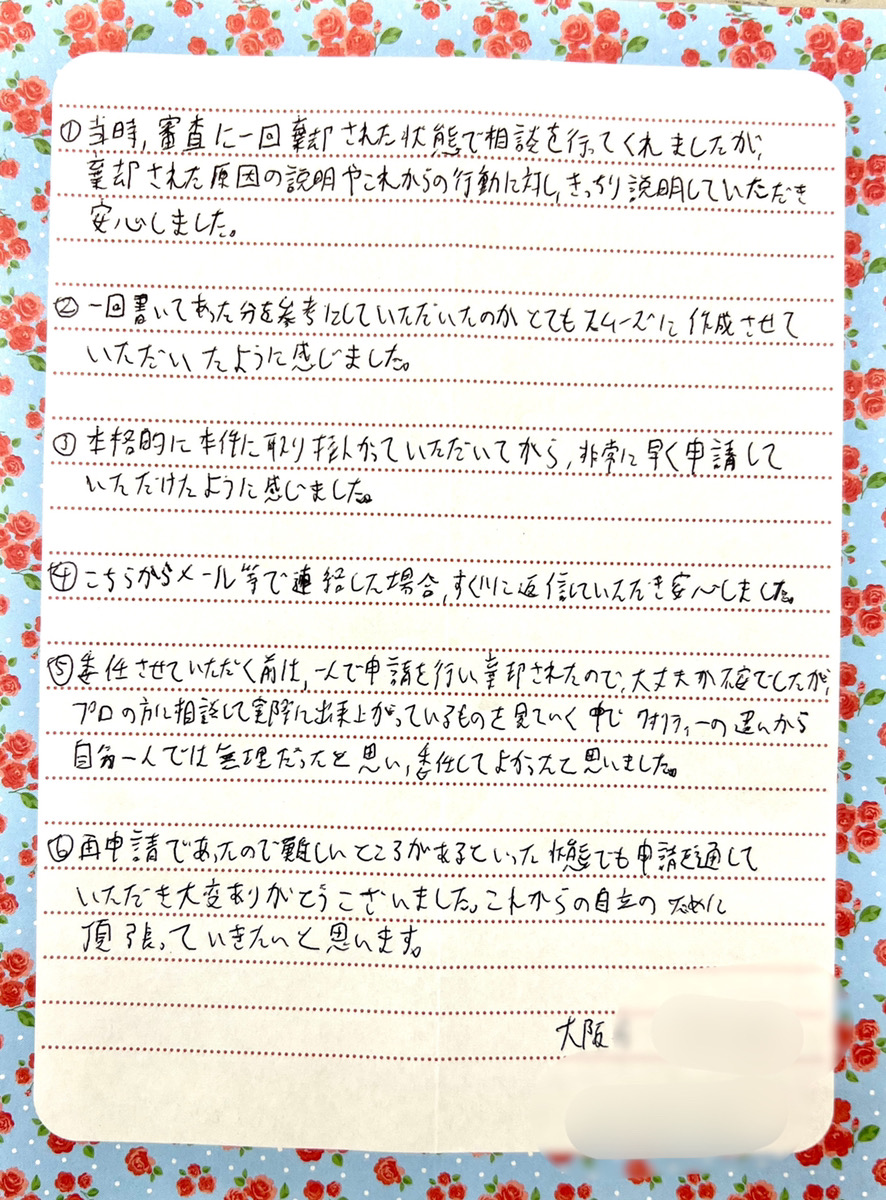 ① 当時、審査に一回棄却された状態で相談を行ってくれましたが、
棄却された原因の説明やこれからの行動に対し、きっちり説明していただき
安心しました。
② 一回書いてあった分を参考にしていただいたのか とてもスムーズに作成させて
いただいたように感じました。
③ 本格的に本件に取り掛かっていただいてから、非常に早く申請して
いただけたように感じました。
④ こちらからメール等で連絡した場合、すぐに返信していただき安心しました。
⑤ 委任させていただく前は、一人で申請を行い棄却されたので、大丈夫か不安でしたが、
プロの方に相談して実際に出来上がっているものを見ていく中で クオリティーの違いから
自分一人では無理だったと思い、委任してよかったと思いました。
⑥ 再申請であったので難しいところがあるといった状態でも申請を通して
いただき大変ありがとうございました。これからの自立のために
頂張っていきたいと思います。
大阪